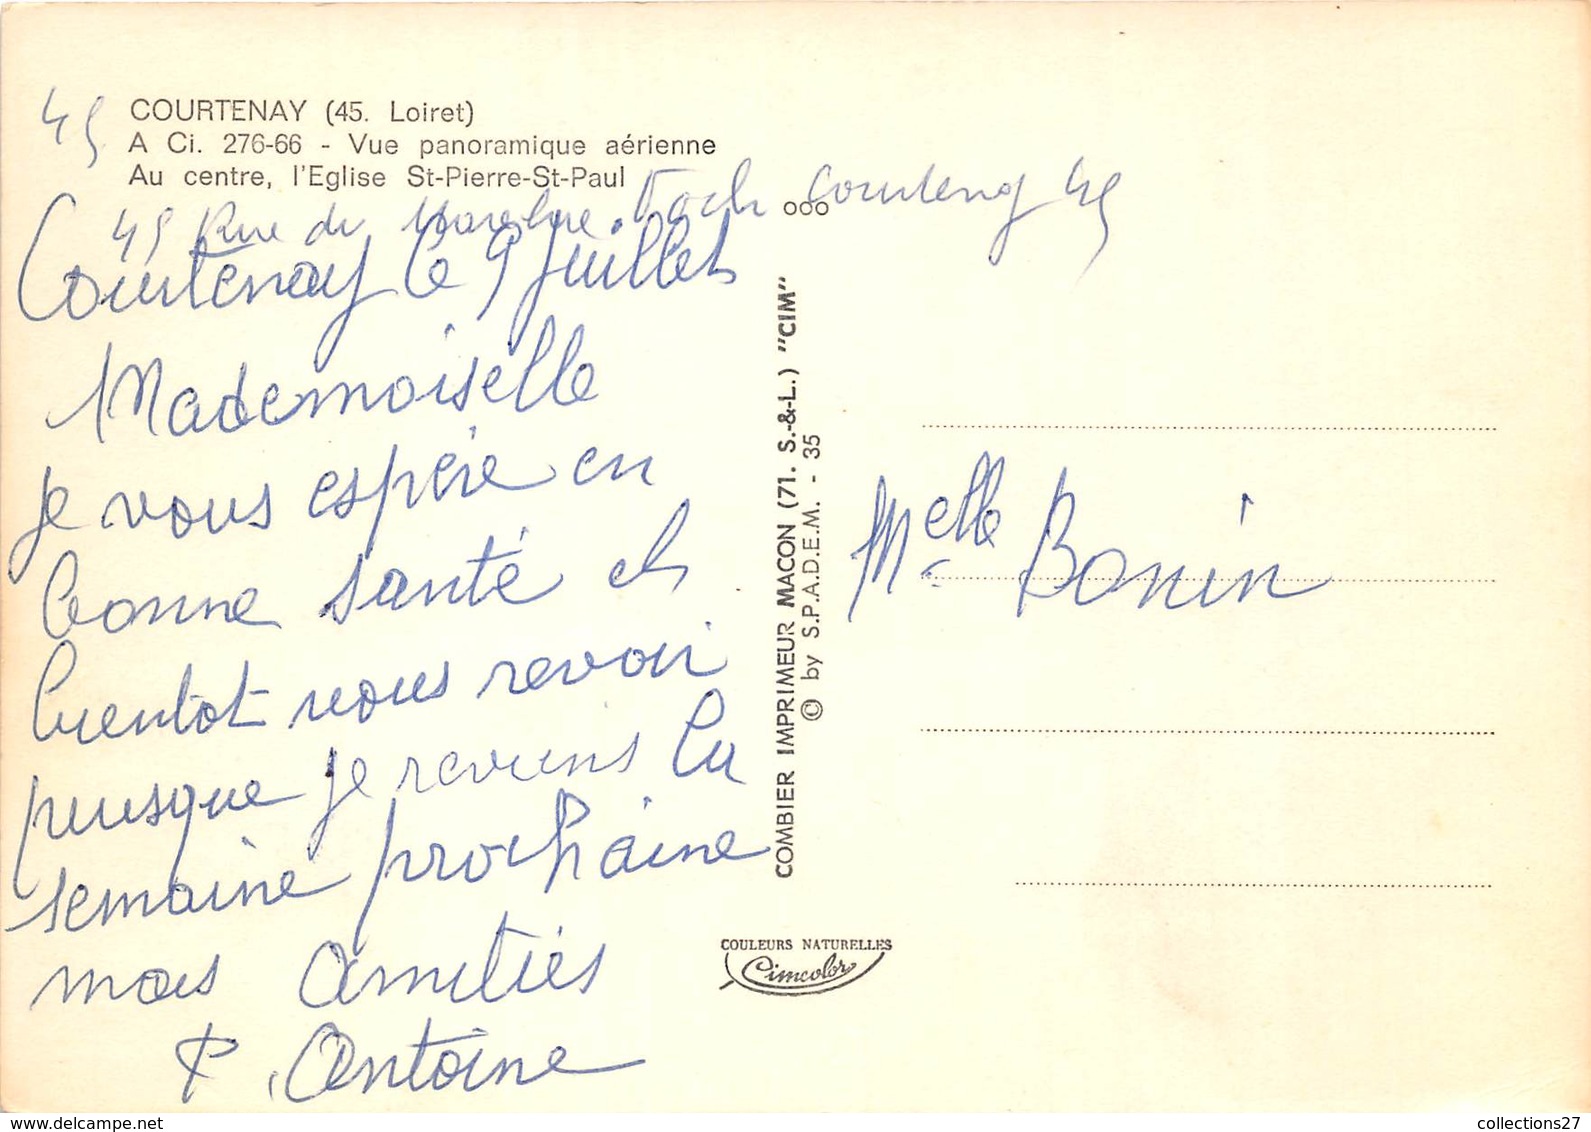 45
COURTENAY (45. Loiret)
A Ci. 276-66 - Vue panoramique aérienne
Au centre, l'Eglise St-Pierre-St-Paul
45 Rue du Marechre Foch Courtenay 45
ooo
Courtenay le 9 Juillet
Mademoiselle
je vous espère en
bonne santé et
bientot vous revoir
puisque je reviens la
semaine prochaine
mes amitiés
P. Antoine
COMBIER IMPRIMEUR MACON (71. S.-&-L.) "CIM"
© by S.P.A.D.E.M. - 35
Melle Bonin
COULEURS NATURELLES
Cimcolor
collections27